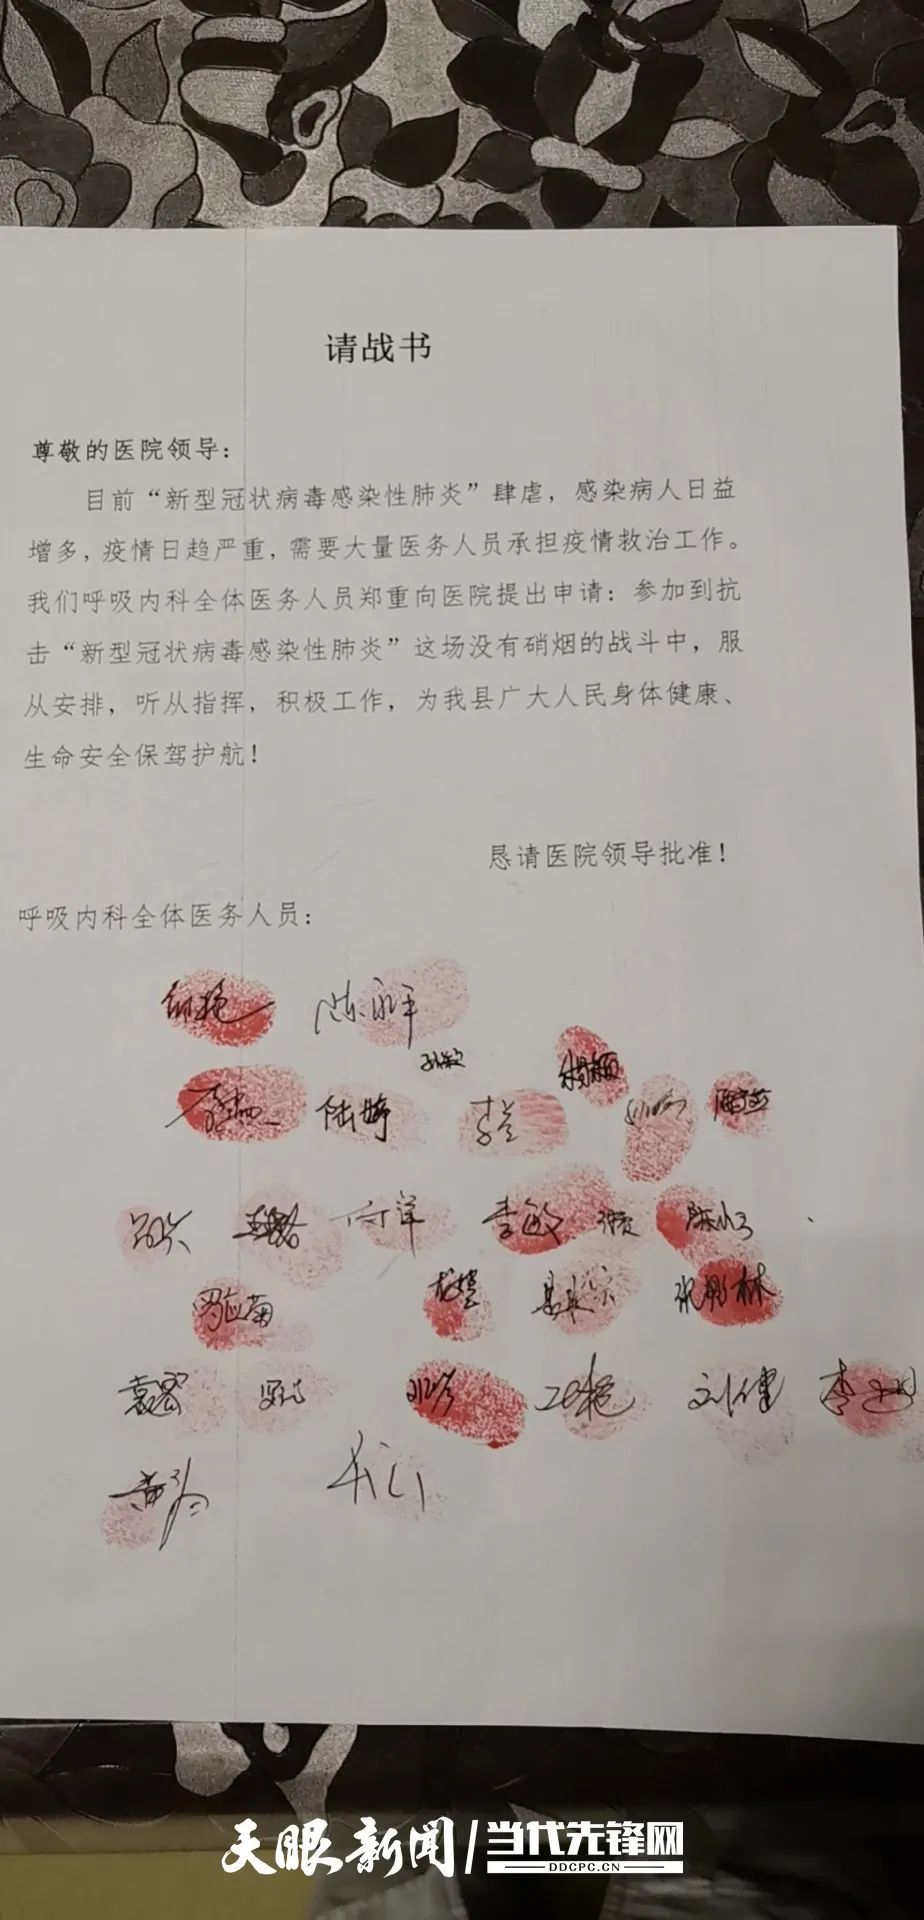 请战书
尊敬的医院领导：
目前“新型冠状病毒感染性肺炎”肆虐，感染病人日益
增多，疫情日趋严重，需要大量医务人员承担疫情救治工作。
我们呼吸内科全体医务人员郑重向医院提出申请：参加到抗
击“新型冠状病毒感染性肺炎”这场没有硝烟的战斗中，服
从安排，听从指挥，积极工作，为我县广大人民身体健康、
生命安全保驾护航！
恳请医院领导批准！
呼吸内科全体医务人员：
陈永平
孙敏
陆婷 李兰
向洋 李敏
罗应菊
袁密 刘健
天眼新闻/当代先锋网
DDCPC.CN